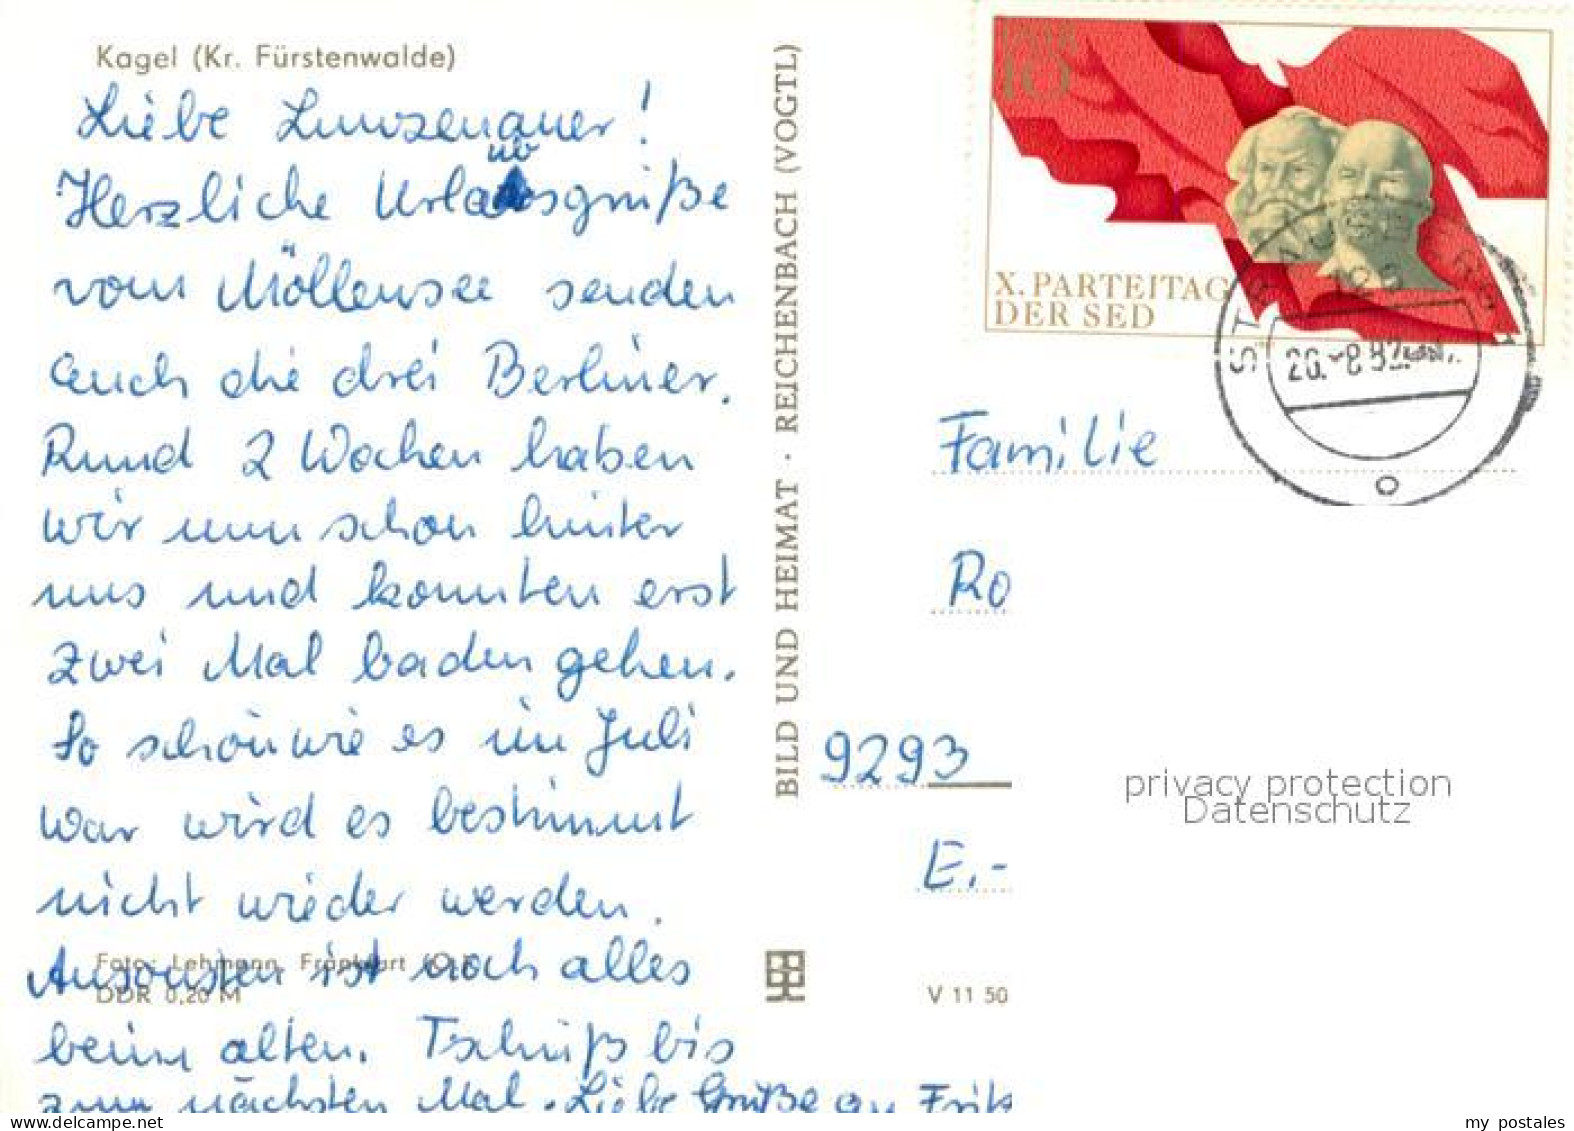 Kagel (Kr. Fürstenwalde)
Liebe Lunzenauer!
Herzliche Urlaubsgrüße
vom Möllensee senden
auch die drei Berliner.
Rund 2 Wochen haben
wir nun schon hinter
uns und konnten erst
zwei Mal baden gehen.
So schön wie es im Juli
war wird es bestimmt
nicht wieder werden.
Ansonsten ist noch alles
beim alten. Tschüß bis
zum nächsten Mal. Liebe Grüße an Fritz
Foto: Lehmann, Frankfurt (O.)
DDR 0,20 M
BILD UND HEIMAT · REICHENBACH (VOGTL)
V 11 50
DDR
10
X. PARTEITAG
DER SED
Familie
Ro
9293
E.-
privacy protection
Datenschutz
www.delcampe.net
my postales